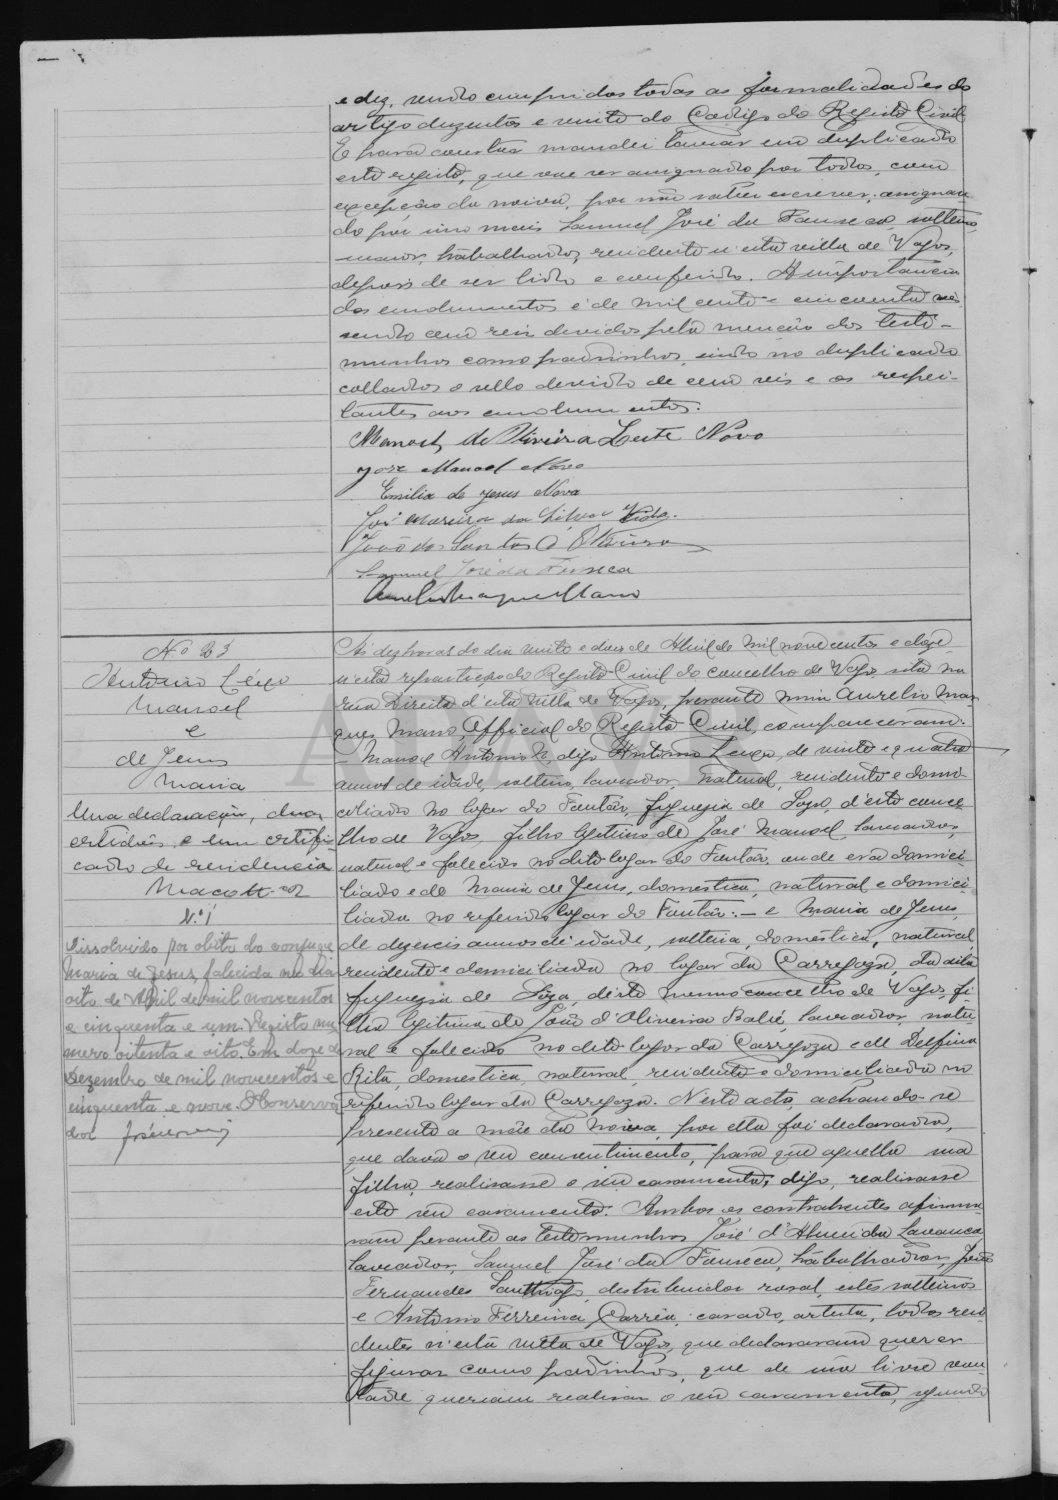 e dez, sendo cumpridas todas as formalidades do
artigo duzentos e vinte do Codigo do Registo Civil
E para constar mandei lavrar em duplicado
este registo, que vae ser assignado por todos, com
excepção da noiva, por não saber escrever, assignan-
do por uma mais Samuel José da Fonseca, solteiro,
maior, trabalhador, residente n'esta villa de Vagos,
depois de ser lido e conferido. A importancia
dos emolumentos é de mil cento e cincoenta reis
sendo cem reis devidos pela menção das teste-
munhas como padrinhos, sendo no duplicado
collados o sello devido de cem reis e os respei-
tantes aos emolumentos.
Manoel de Oliveira Leste Novo
José Manoel Novo
Emilia de Jesus Nova
José Moreira da Silva Vidal.
João dos Santos d'Oliveira
Samuel José da Fonseca
Aurelio Marques Mano
Nº 23
Antonio Léxo
Manoel
e
de Jesus
Maria
Uma declaração, duas
certidões, e um certifi-
cado de residencia
Maço
N.º 1
Dissolvido por obito do conjuge
Maria de Jesus, falecida no dia
oito de Abril de mil novecentos
e cinquenta e um. Registo nu-
mero oitenta e oito. Em doze de
Dezembro de mil novecentos e
cinquenta e nove. O Conserva-
dor
Ás dez horas do dia vinte e dois de Abril de mil novecentos e doze
n'esta repartição do Registo Civil do concelho de Vagos, sita na
rua Direita d'esta villa de Vagos, perante mim Aurelio Mar-
ques Mano, Official do Registo Civil, compareceram:
– Manoel Antonio, digo Antonio Lexo, de vinte e quatro
annos de idade, solteiro, lavrador, natural, residente e domi-
ciliado no lugar do Fontão, freguezia de Soza, d'este conce
lho de Vagos, filho legitimo de José Manoel, lavrador,
natural e falecido no dito lugar do Fontão, onde era domici-
liado e de Maria de Jesus, domestica, natural e domici-
liada no referido lugar do Fontão: – e Maria de Jesus,
de dezeseis annos de idade, solteira, domestica, natural,
residente e domiciliada no lugar da Carregoza, da dita
freguezia de Soza, d'este mesmo concelho de Vagos, fi-
lha legitima de João d'Oliveira Balié, lavrador, natu-
ral e falecido no dito lugar da Carregoza e de Delfina
Rita, domestica, natural, residente e domiciliada no
referido lugar da Carregoza. N'este acto, achando-se
presente a mãe da noiva, por ella foi declarado,
que dava o seu consentimento, para que aquella sua
filha, realisasse o seu casamento, digo, realisasse
este seu casamento. Ambos os contrahentes afirma-
ram perante as testemunhas José d'Almeida Lavanca
lavrador, Samuel José da Fonseca, trabalhador, João
Fernandes Santhiago, destribuidor rural, estes solteiros
e Antonio Ferreira Corrêa, casado, artista, todos resi-
dentes n'esta villa de Vagos, que declararam querer
figurar como padrinhos, que de sua livre von-
tade queriam realisar o seu casamento, segundo